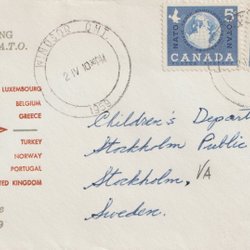 NG
A.T.O.
LUXEMBOURG
BELGIUM
GREECE
TURKEY
NORWAY
PORTUGAL
UNITED KINGDOM
WINDSOR ONT.
2 IV
1959
NATO 5 OTAN
CANADA
Children's Depart
Stockholm Public
Stockholm, VA
Sweden.